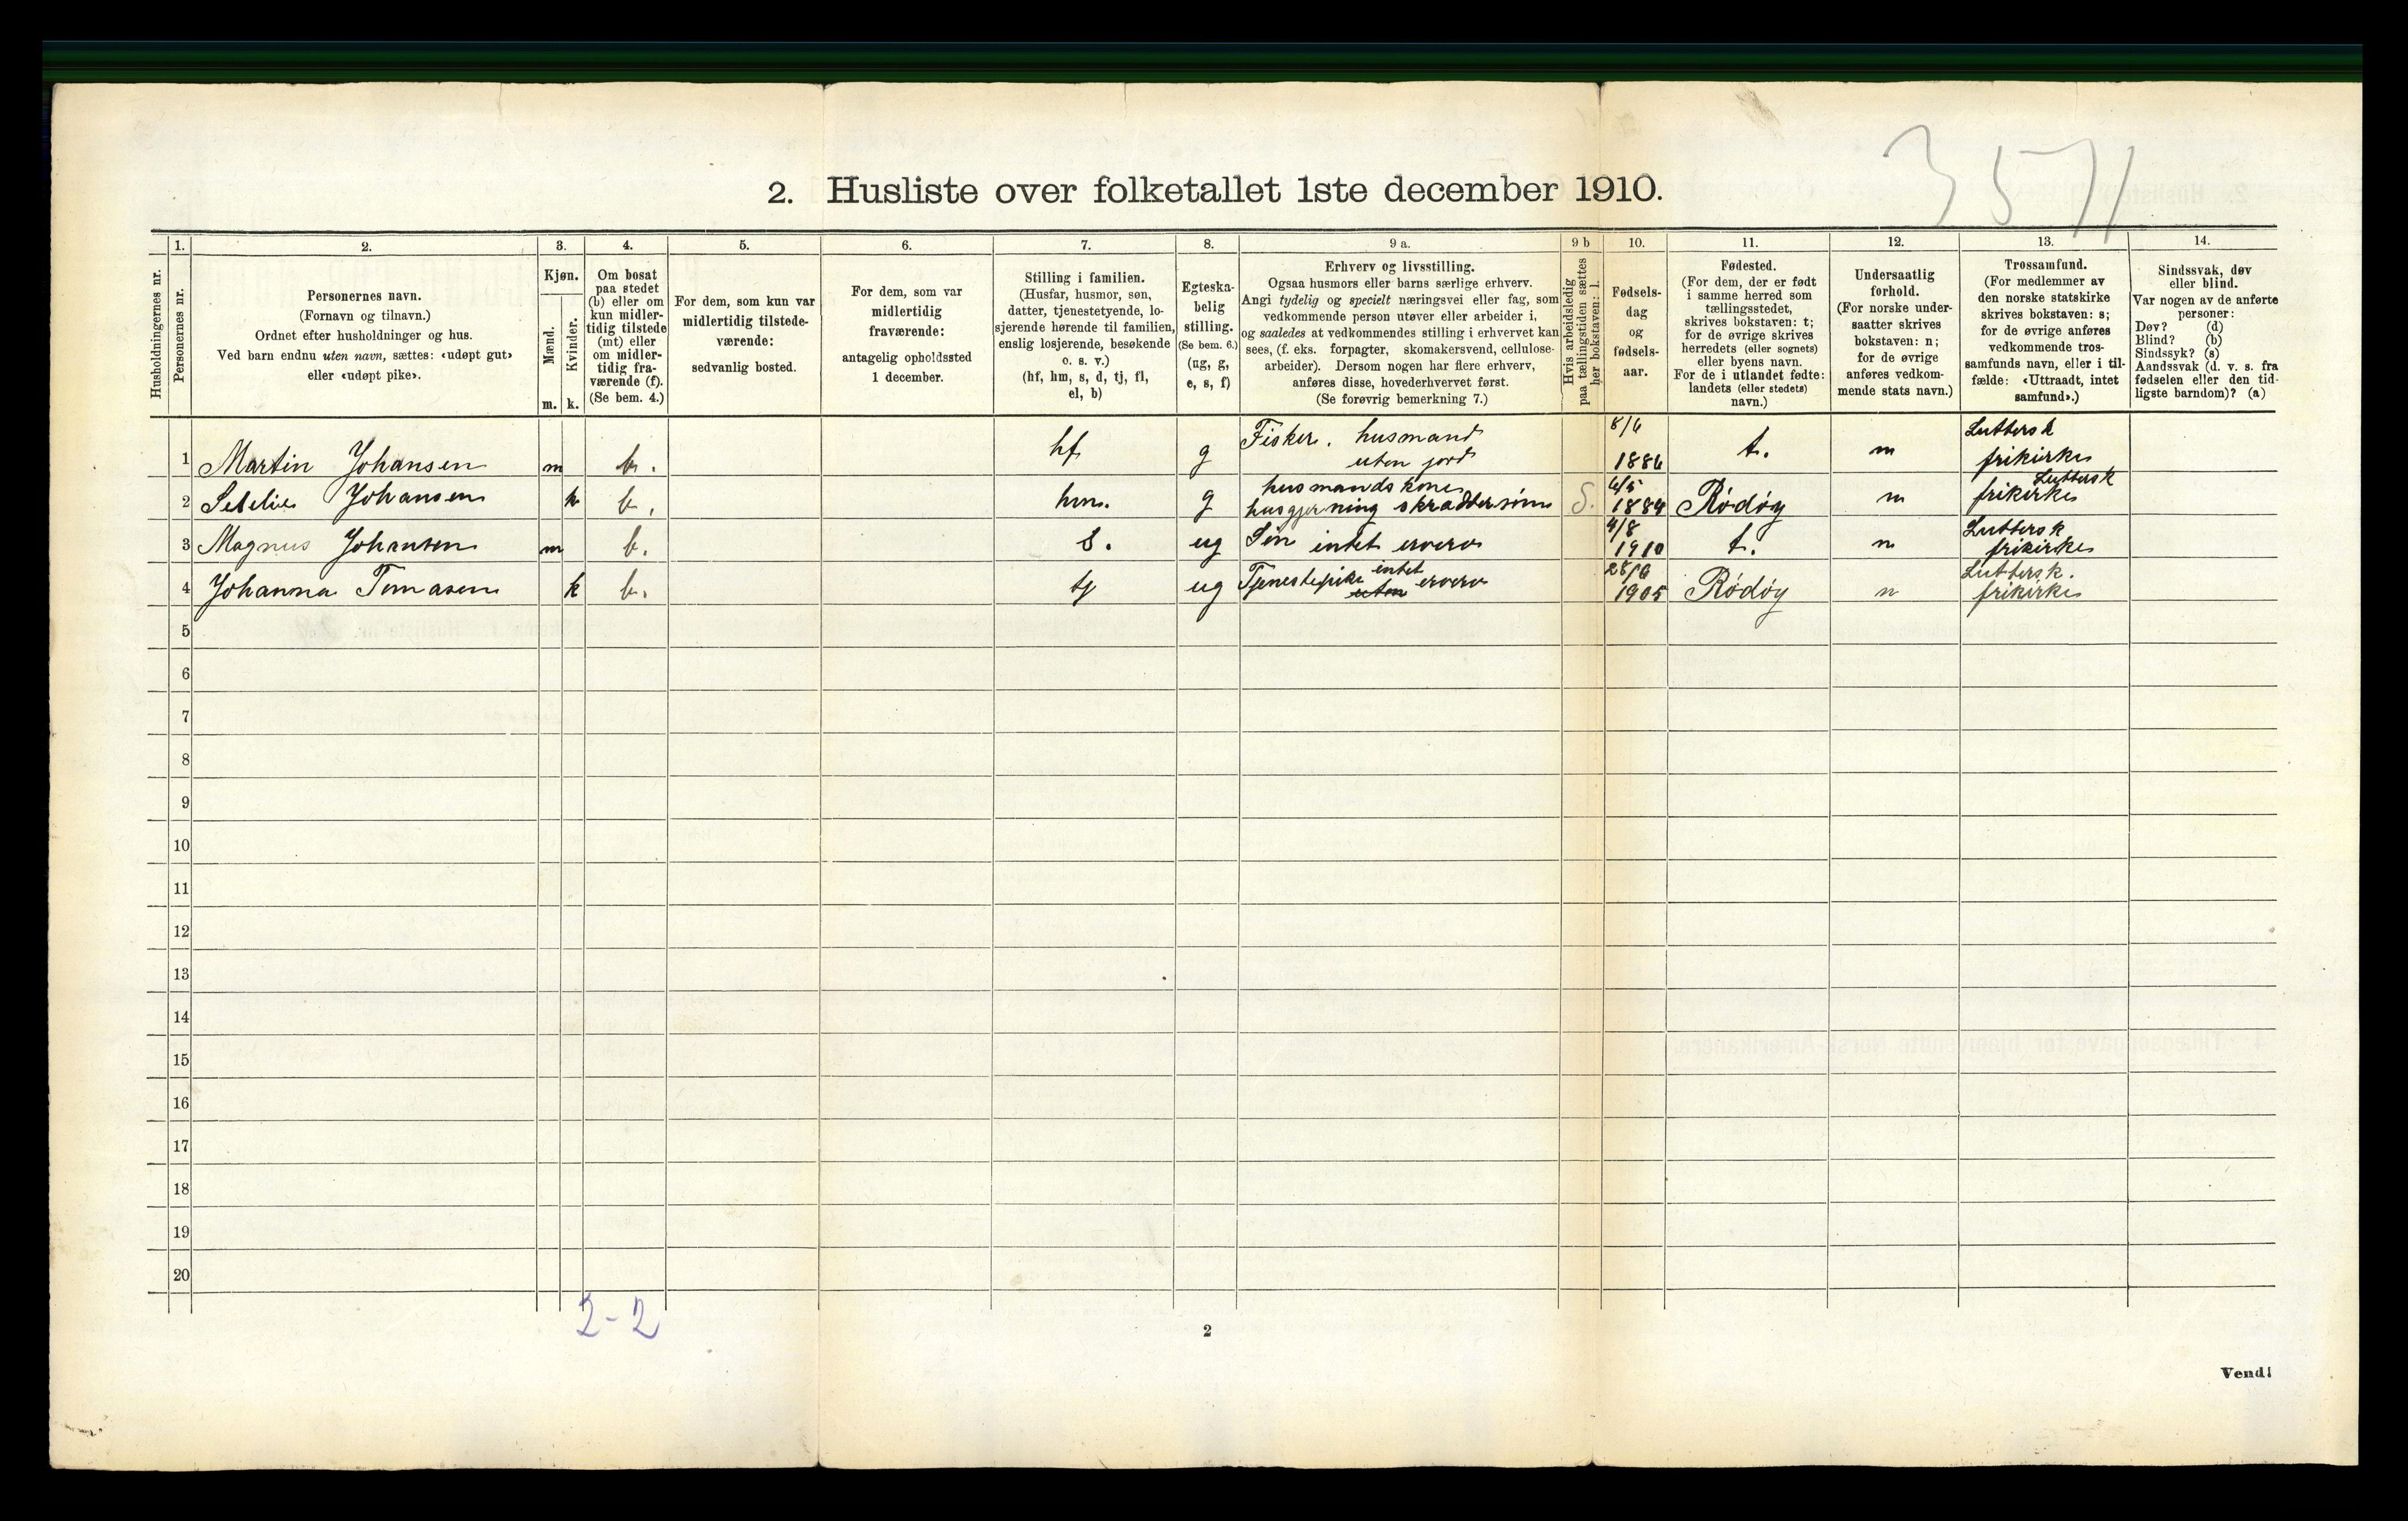 3571
2. Husliste over folketallet 1ste december 1910.
Husholdningernes nr.
1.
Personernes nr.
2.
Personernes navn.
(Fornavn og tilnavn.)
Ordnet efter husholdninger og hus.
Ved barn endnu uten navn, sættes: «udøpt gut»
eller «udøpt pike».
3.
Kjøn.
Mænd.
Kvinder.
m. k.
4.
Om bosat
paa stedet
(b) eller om
kun midler-
tidig tilstede
(mt) eller
om midler-
tidig fra-
værende (f).
(Se bem. 4.)
5.
For dem, som kun var
midlertidig tilstede-
værende:
sedvanlig bosted.
6.
For dem, som var
midlertidig
fraværende:
antagelig opholdssted
1 december.
7.
Stilling i familien.
(Husfar, husmor, søn,
datter, tjenestetyende, lo-
sjerende hørende til familien,
enslig losjerende, besøkende
o. s. v.)
(hf, hm, s, d, tj, fl,
el, b)
8.
Egteska-
belig
stilling.
(Se bem. 6.)
(ug, g,
e, s, f)
9 a.
Erhverv og livsstilling.
Ogsaa husmors eller barns særlige erhverv.
Angi tydelig og specielt næringsvei eller fag, som
vedkommende person utøver eller arbeider i,
og saaledes at vedkommendes stilling i erhvervet kan
sees, (f. eks. forpagter, skomakersvend, cellulose-
arbeider). Dersom nogen har flere erhverv,
anføres disse, hovederhvervet først.
(Se forøvrig bemerkning 7.)
9 b
Hvis arbeidsledig
paa tællingstiden sættes
her bokstaven: l.
10.
Fødsels-
dag
og
fødsels-
aar.
11.
Fødested.
(For dem, der er født
i samme herred som
tællingsstedet,
skrives bokstaven: t;
for de øvrige skrives
herredets (eller sognets)
eller byens navn.
For de i utlandet fødte:
landets (eller stedets)
navn.)
12.
Undersaatlig
forhold.
(For norske under-
saatter skrives
bokstaven: n;
for de øvrige
anføres vedkom-
mende stats navn.)
13.
Trossamfund.
(For medlemmer av
den norske statskirke
skrives bokstaven: s;
for de øvrige anføres
vedkommende tros-
samfunds navn, eller i til-
fælde: «Uttraadt, intet
samfund».)
14.
Sindssvak, døv
eller blind.
Var nogen av de anførte
personer:
Døv? (d)
Blind? (b)
Sindssyk? (s)
Aandssvak (d. v. s. fra
fødselen eller den tid-
ligste barndom)? (a)
1 Martin Johansen m b. hf g Fisker. husmand uten jord 8/6 t. n Luttersk frikirke
2 Johansen k b. hm. g husmandskone husgjerning skræddersöm S. 6/5 1884 Rödöy n Luttersk frikirke
3 Magnus Johansen m b. s. ug Sön intet erverv 4/8 1910 t. n Luttersk frikirke
4 Johanna Tomasen k b. tj ug Tjenestepike intet uten erverv 28/6 1905 Rödöy n Luttersk. frikirke
5
6
7
8
9
10
11
12
13
14
15
16
17
18
19
20
2-2
2
Vend!